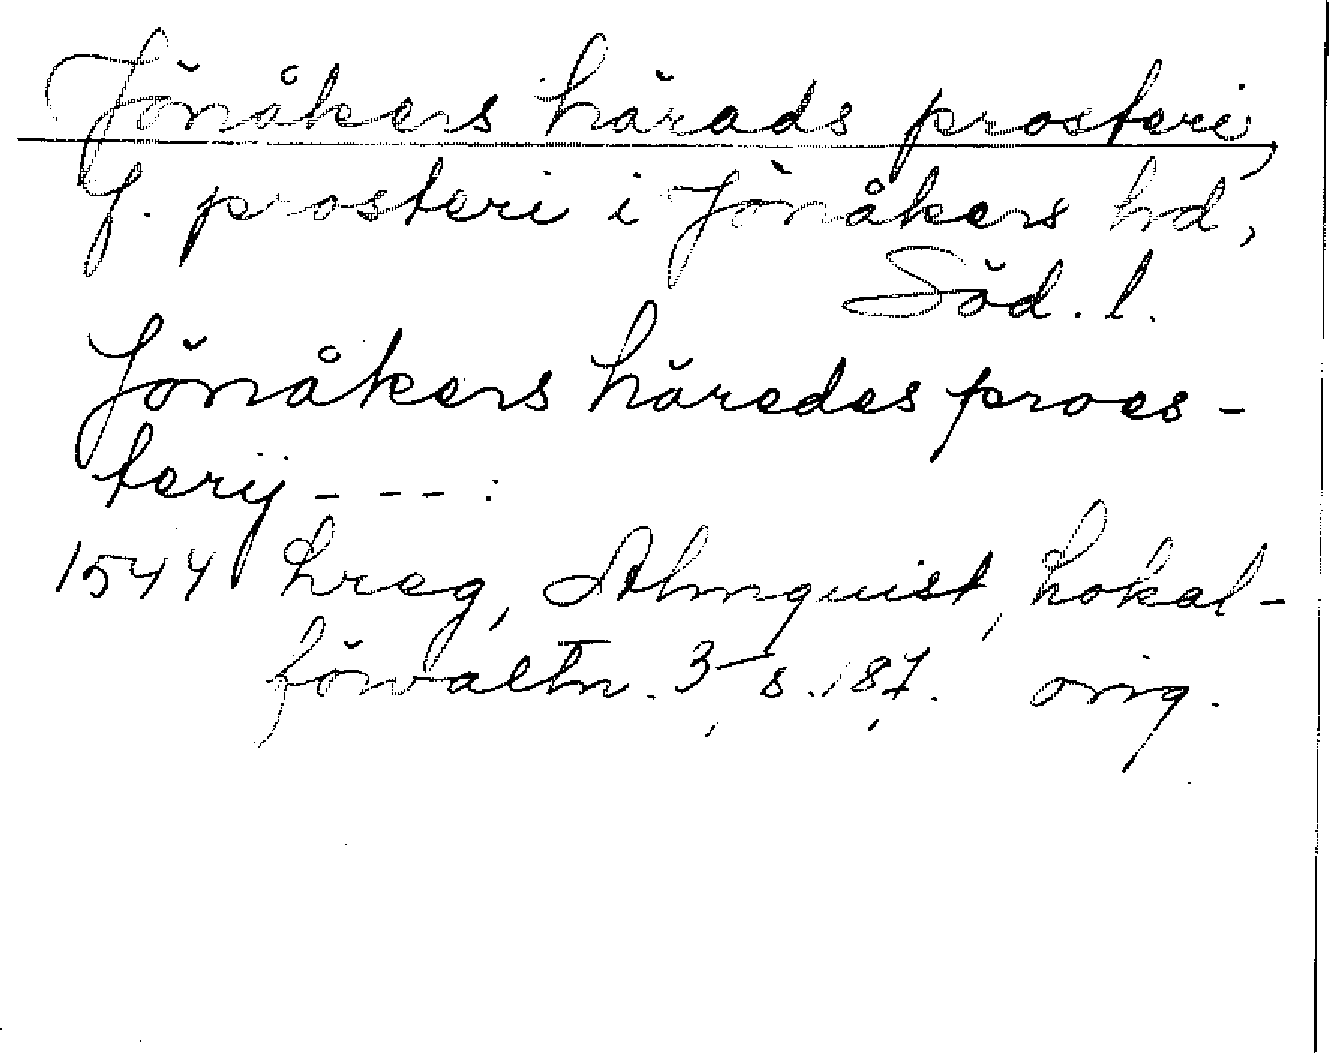 Jönåkers härads prosteri,
f. prosteri i Jönåkers hd,
Söd. l.
Jönåkers häredes proes-
terij - - - :
1544 Lreg, Almquist, Lokal-
förvaltn. 3, s. 187. orig.